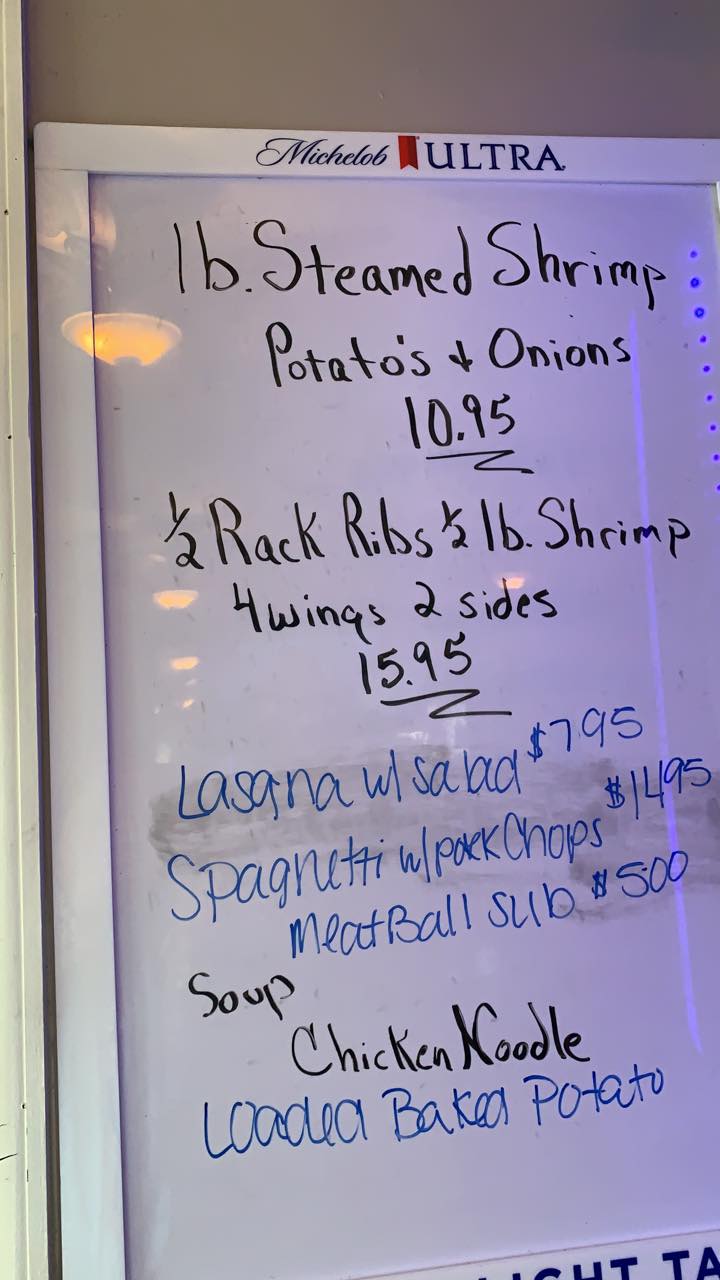 Michelob ULTRA
1 lb. Steamed Shrimp
Potato's & Onions
10.95
1/2 Rack Ribs 1/2 lb. Shrimp
4 wings 2 sides
15.95
Lasagna w/ salad $7.95
Spaghetti w/ pork Chops $14.95
MeatBall Sub $5.00
Soup
Chicken Noodle
Loaded Baked Potato